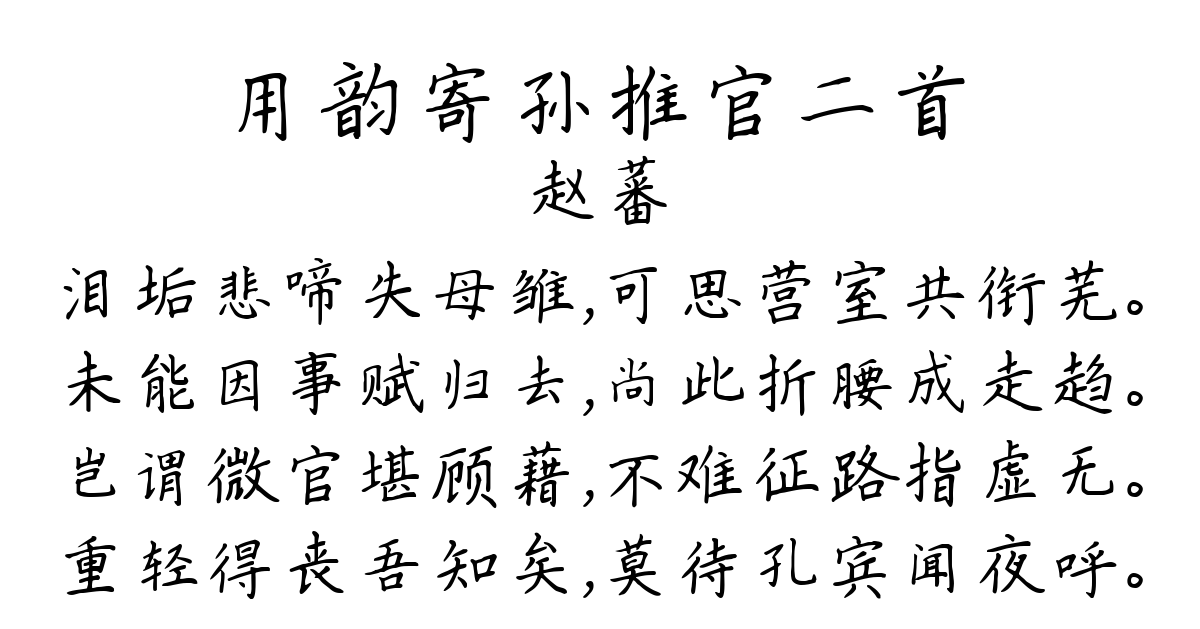 用韵寄孙推官二首
赵蕃
泪垢悲啼失母雏,可思营室共衔芜。
未能因事赋归去,尚此折腰成走趋。
岂谓微官堪顾藉,不难征路指虚无。
重轻得丧吾知矣,莫待孔宾闻夜呼。